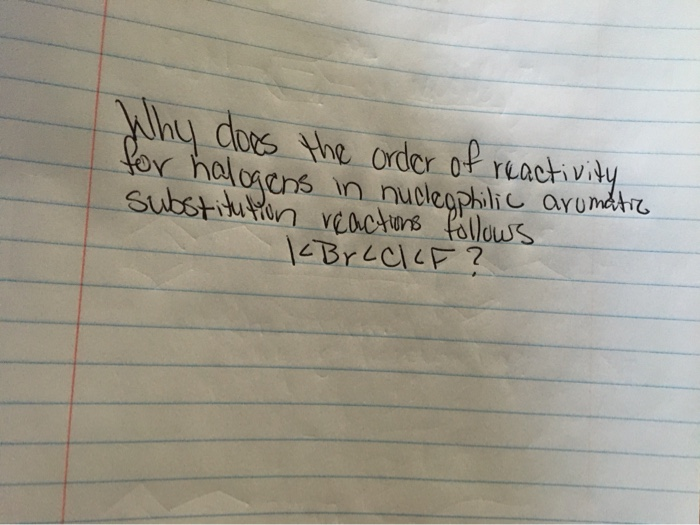 Why does the order of reactivity
for halogens in nucleophilic aromatic
substitution reactions follows
I<Br<Cl<F?